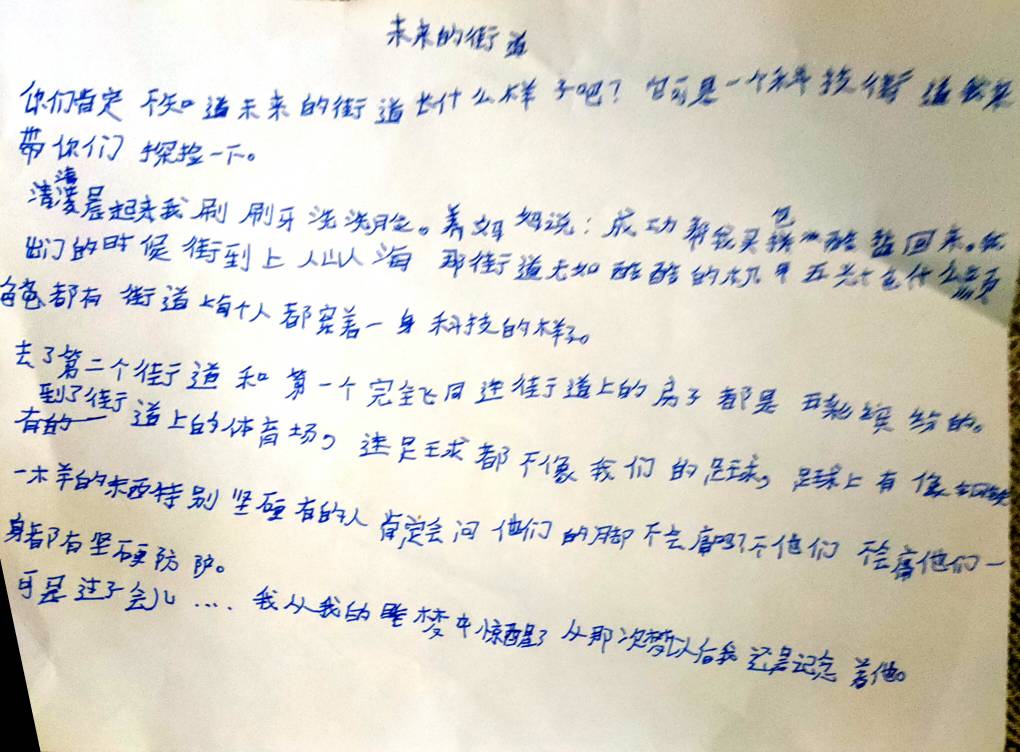 未来的街道
你们肯定不知道未来的街道长什么样子吧？它可是一个科技街道我来
带你们探险一下。
清晨起来我刷刷牙洗洗脸。妈妈说：成功帮我买 回来。我
出门的时候街到上人山人海那街道无如酷酷的 五光 色什么颜
色都有街道上每个人都穿着一身科技的样子。
去了第二个街道和第一个完全飞同连街道上的房子都是五彩缤纷的。
到了街道上的体育场，连足球都不像我们的足球，足球上有像
一样的东西特别坚硬有的人肯定会问他们的脚不会痛吗？不他们不会痛他们一
身都有坚硬防护。
可是过了会儿....我从我的睡梦中惊醒了从那次梦以后我还是记念着他。